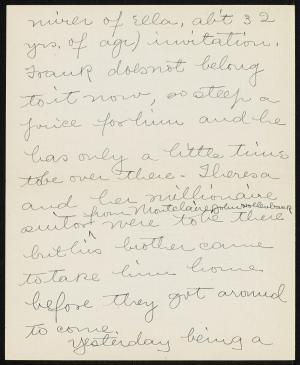 mirer of Ella, ab't 32
yrs. of age) invitation.
Frank does not belong
to it now, so steep a
price for him and he
has only a little time
to be over there. Theresa
and her millionaire
from Montclair, John
suitor were to be there
but his brother came
to take him home
before they got around
to come.
Yesterday being a